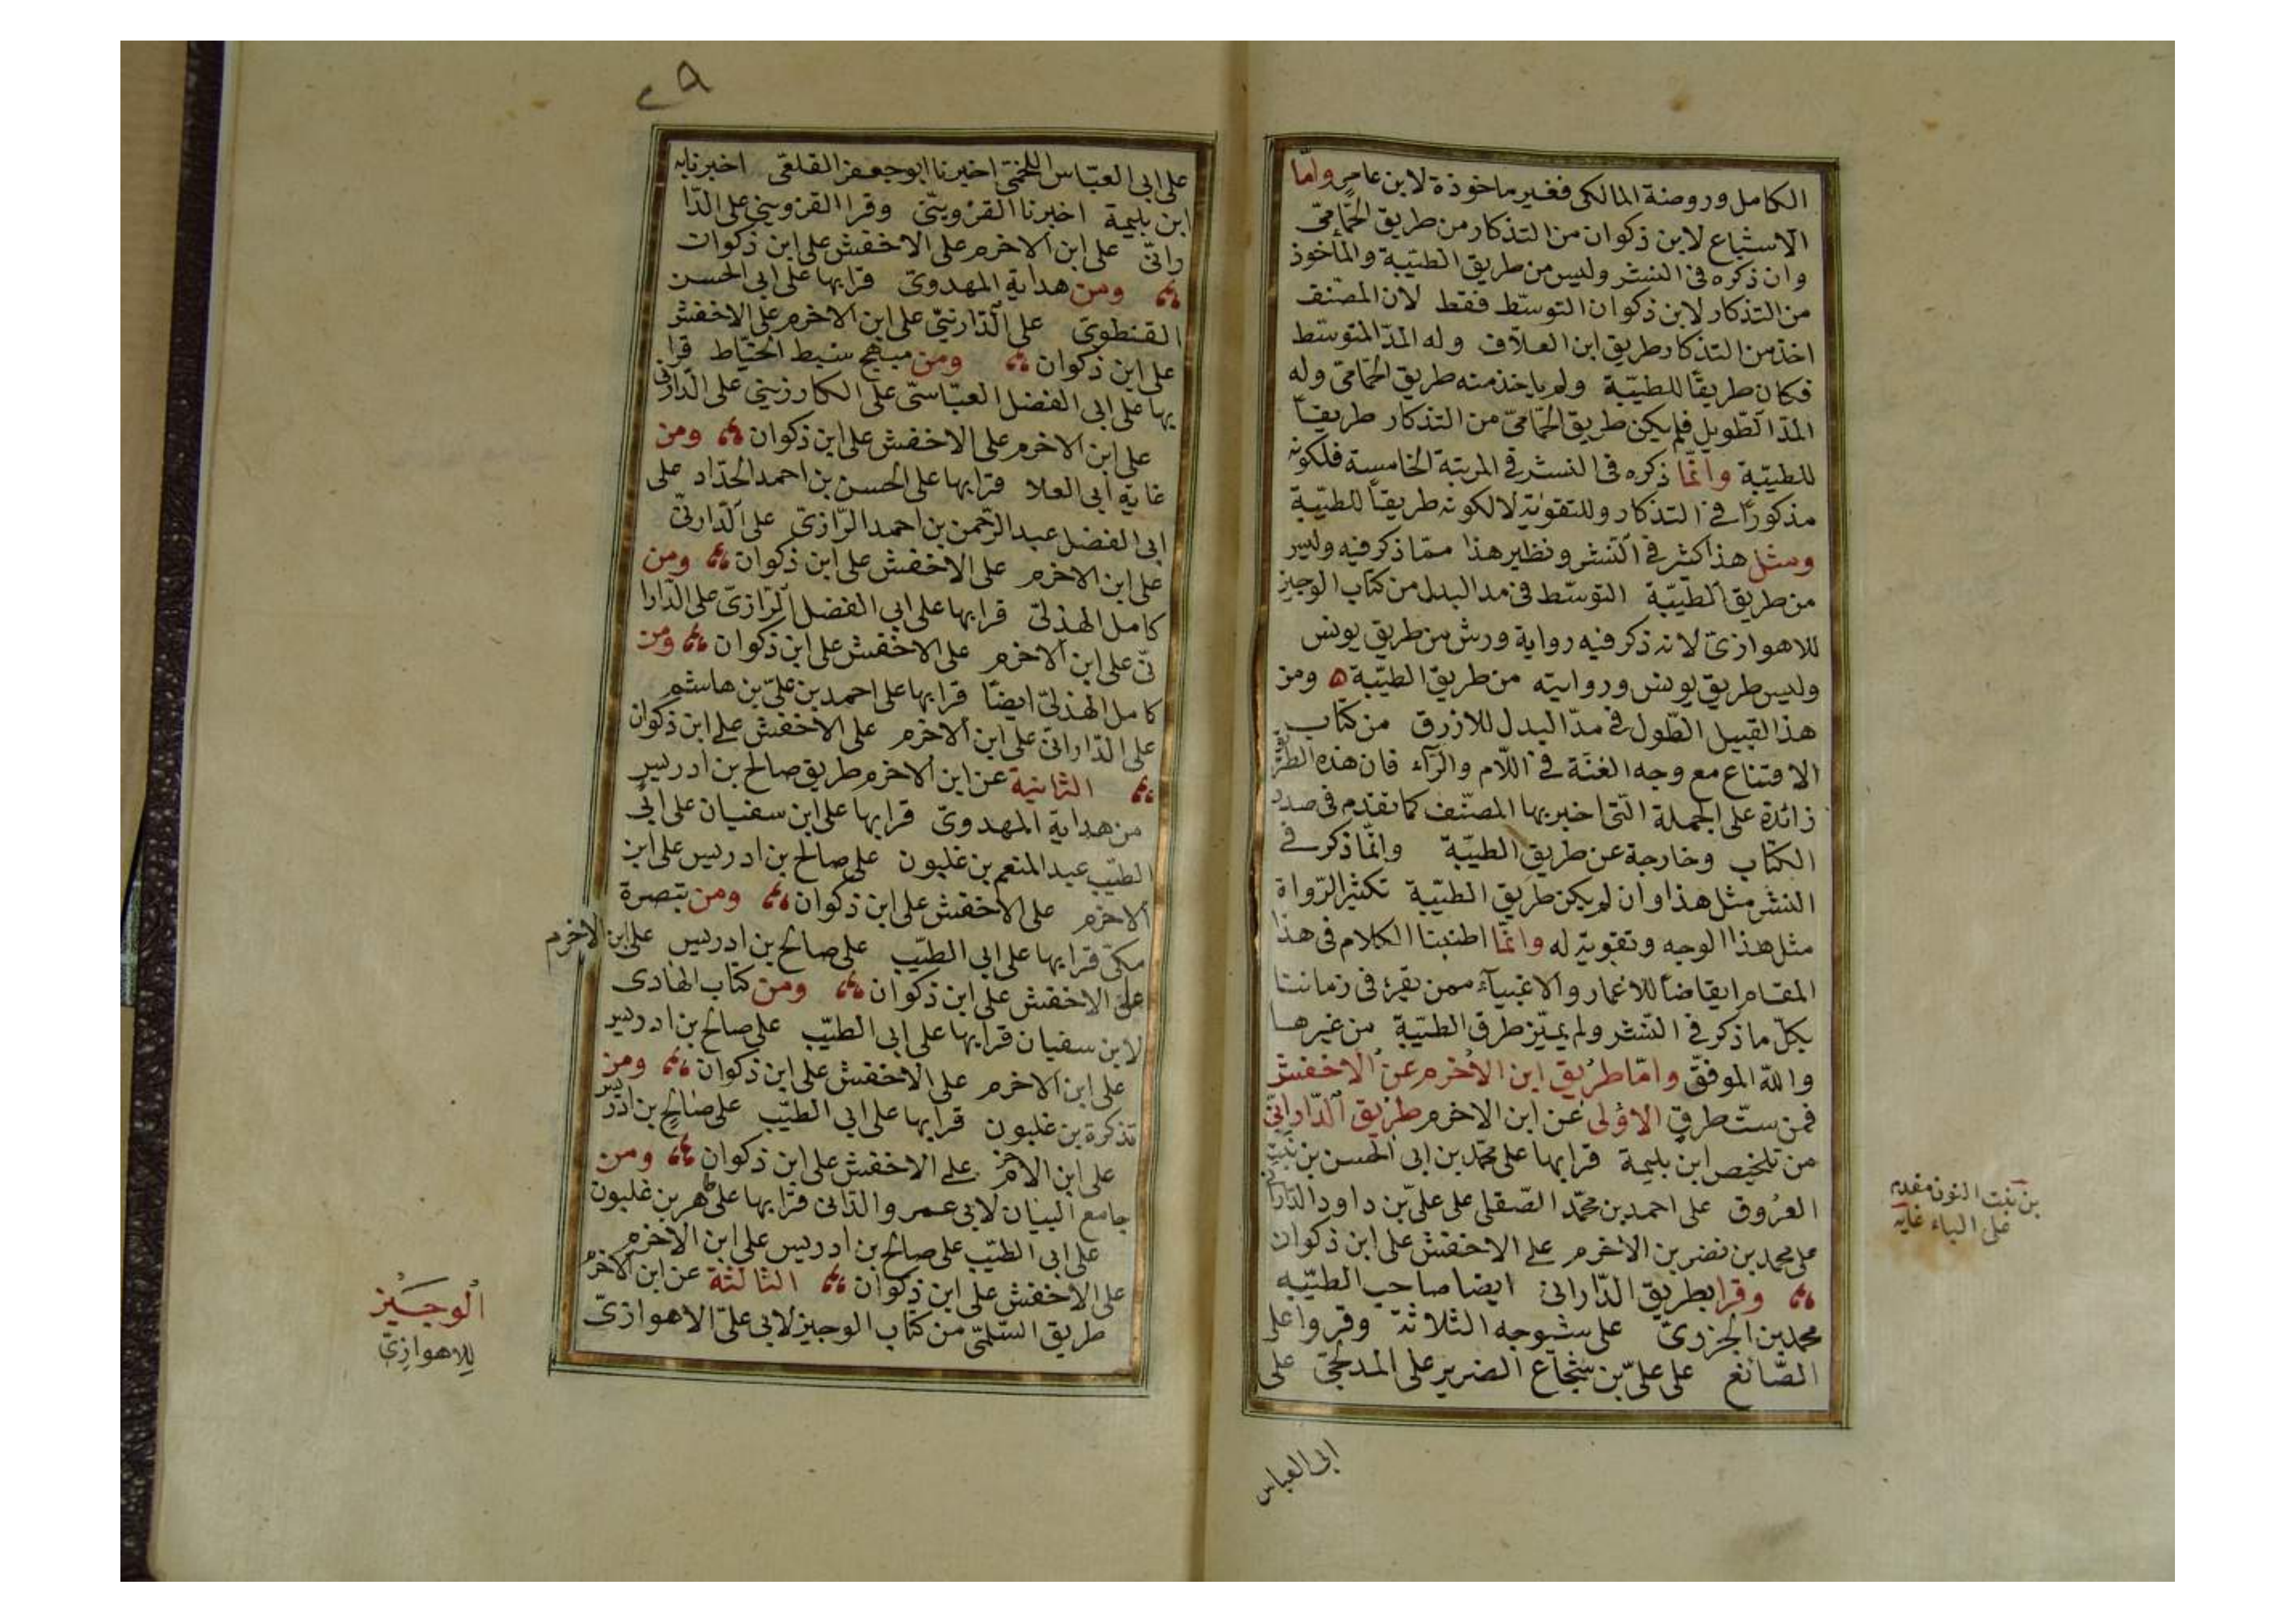 الكامل وروضة المالكى فغير ماخوذة لابن عامر واما
الاشباع لابن ذكوان من التذكار من طريق الحمّامىّ
وان ذكره فى النشر وليس من طريق الطيّبة والماخوذ
من التذكار لابن ذكوان التوسّط فقط لان المصنف
اخذ من التذكار طريق ابن العلاّف وله المدّ المتوسّط
فكان طريقًا للطيّبة ولم ياخذ منه طريق الحمّامىّ وله
المدّ الطّويل فلم يكن طريق الحمّامىّ من التذكار طريقًا
للطيّبة وانّما ذكره فى النشر فى المرتبة الخامسة فلكونه
مذكورًا فى التذكار وللتقوية لا لكونه طريقاً للطيّبة
ومثل هذا كثر فى النشر ونظير هذا ممّا ذكر فيه وليس
من طريق الطيّبة التوسّط فى مد البدل من كتاب الوجيز
للاهوازىّ لانه ذكر فيه رواية ورش من طريق يونس
وليس طريق يونس وروايته من طريق الطيّبة ه ومن
هذا القبيل الطّول فى مدّ البدل للازرق من كتاب
الاقناع مع وجه الغنّة فى اللّام والرّآء فان هذه الطرق
زائدة على الجملة الّتى اخبر بها المصنّف كما تقدم فى صدد
الكتاب وخارجة عن طريق الطيّبة وانّما ذكر فى
النشر مثل هذا وان لم يكن طريق الطيّبة تكثير الرّواة
مثل هذا الوجه وتقوية له وانّما اطنبنا الكلام فى هذا
المقام ايقاضاً للاغمار والاغبيآء ممن يقرء فى زماننا
بكلّ ما ذكر فى النّشر ولم يميّز طرق الطيّبة من غيرها
والله الموفّق وامّا طريق ابن الاخرم عن الاخفش
فمن ستّ طرق الاولى عن ابن الاخرم طريق الدّارانىّ
من تلخيص ابن بليمة قرا بها على محمّد بن ابى الحسن بن نبت
العروق على احمد بن محمّد الصّقلى على علىّ بن داود الدّارانى
على محمد بن نضر بن الاخرم على الاخفش على ابن ذكوان
وقرا بطريق الدّارانى ايضا صاحب الطيّبه
محمد بن الجزرىّ على شيوخه الثلاثة وقروا على
الصّائغ على علىّ بن شجاع الضرير على المدلجىّ على
ابى العباس
بن نبت النون مقدم
على الباء غايه
على ابى العبّاس اللخمىّ اخبرنا ابو جعفر القلعىّ اخبرنا به
ابن بليمة اخبرنا القزوينىّ وقرا القزوينى على الدّا
رانىّ على ابن الاخرم على الاخفش على ابن ذكوان
ومن هداية المهدوىّ قرا بها على ابى الحسن
القنطوىّ على الدّارنىّ على ابن الاخرم على الاخفش
على ابن ذكوان ومن مبهج سبط الخيّاط قرا
بها على ابى الفضل العبّاسىّ على الكارزينى على الدّارنى
على ابن الاخرم على الاخفش على ابن ذكوان ومن
غاية ابى العلا قرا بها على الحسن بن احمد الحدّاد على
ابى الفضل عبد الرّحمن بن احمد الرّازىّ على الدّارنىّ
على ابن الاخرم على الاخفش على ابن ذكوان ومن
كامل الهذلىّ قرا بها على ابى الفضل الرّازىّ على الدّارا
نّى على ابن الاخرم على الاخفش على ابن ذكوان ومن
كامل الهذلىّ ايضًا قرا بها على احمد بن علىّ بن هاشم
على الدّارانىّ على ابن الاخرم على الاخفش على ابن ذكوان
الثانية عن ابن الاخرم طريق صالح بن ادريس
من هداية المهدوىّ قرا بها على ابن سفيان على ابى
الطيّب عبد المنعم بن غلبون على صالح بن ادريس على ابن
الاخرم على الاخفش على ابن ذكوان ومن تبصرة
مكىّ قرا بها على ابى الطيّب على صالح بن ادريس على ابن الاخرم
على الاخفش على ابن ذكوان ومن كتاب الهادى
لابن سفيان قرا بها على ابى الطيّب على صالح بن ادريس
على ابن الاخرم على الاخفش على ابن ذكوان ومن
تذكرة بن غلبون قرا بها على ابى الطيّب على صالح بن ادريس
على ابن الاخرم على الاخفش على ابن ذكوان ومن
جامع البيان لابى عمرو الدّانى قرا بها على طهر بن غلبون
على ابى الطيّب على صالح بن ادريس على ابن الاخرم
على الاخفش على ابن ذكوان الثالثة عن ابن الاخرم
طريق السّلمىّ من كتاب الوجيز لابى علىّ الاهوازىّ
الوجيز
للاهوازىّ